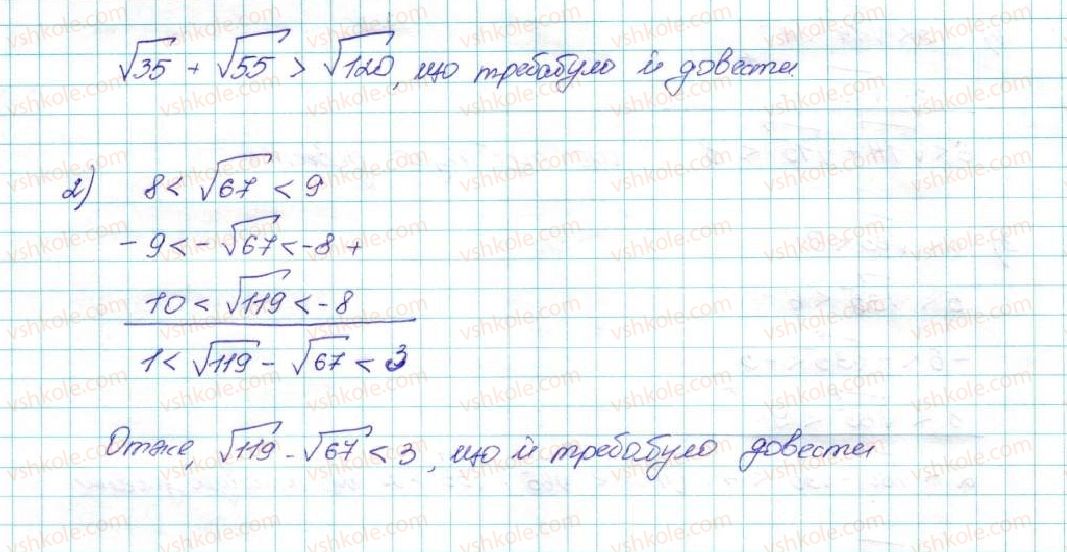 √35 + √55 > √120, що требабуло й довести.
2) 8 < √67 < 9
- 9 < - √67 < -8 +
10 < √119 < -8
1 < √119 - √67 < 3
Отже, √119 - √67 < 3, що й требабуло довести